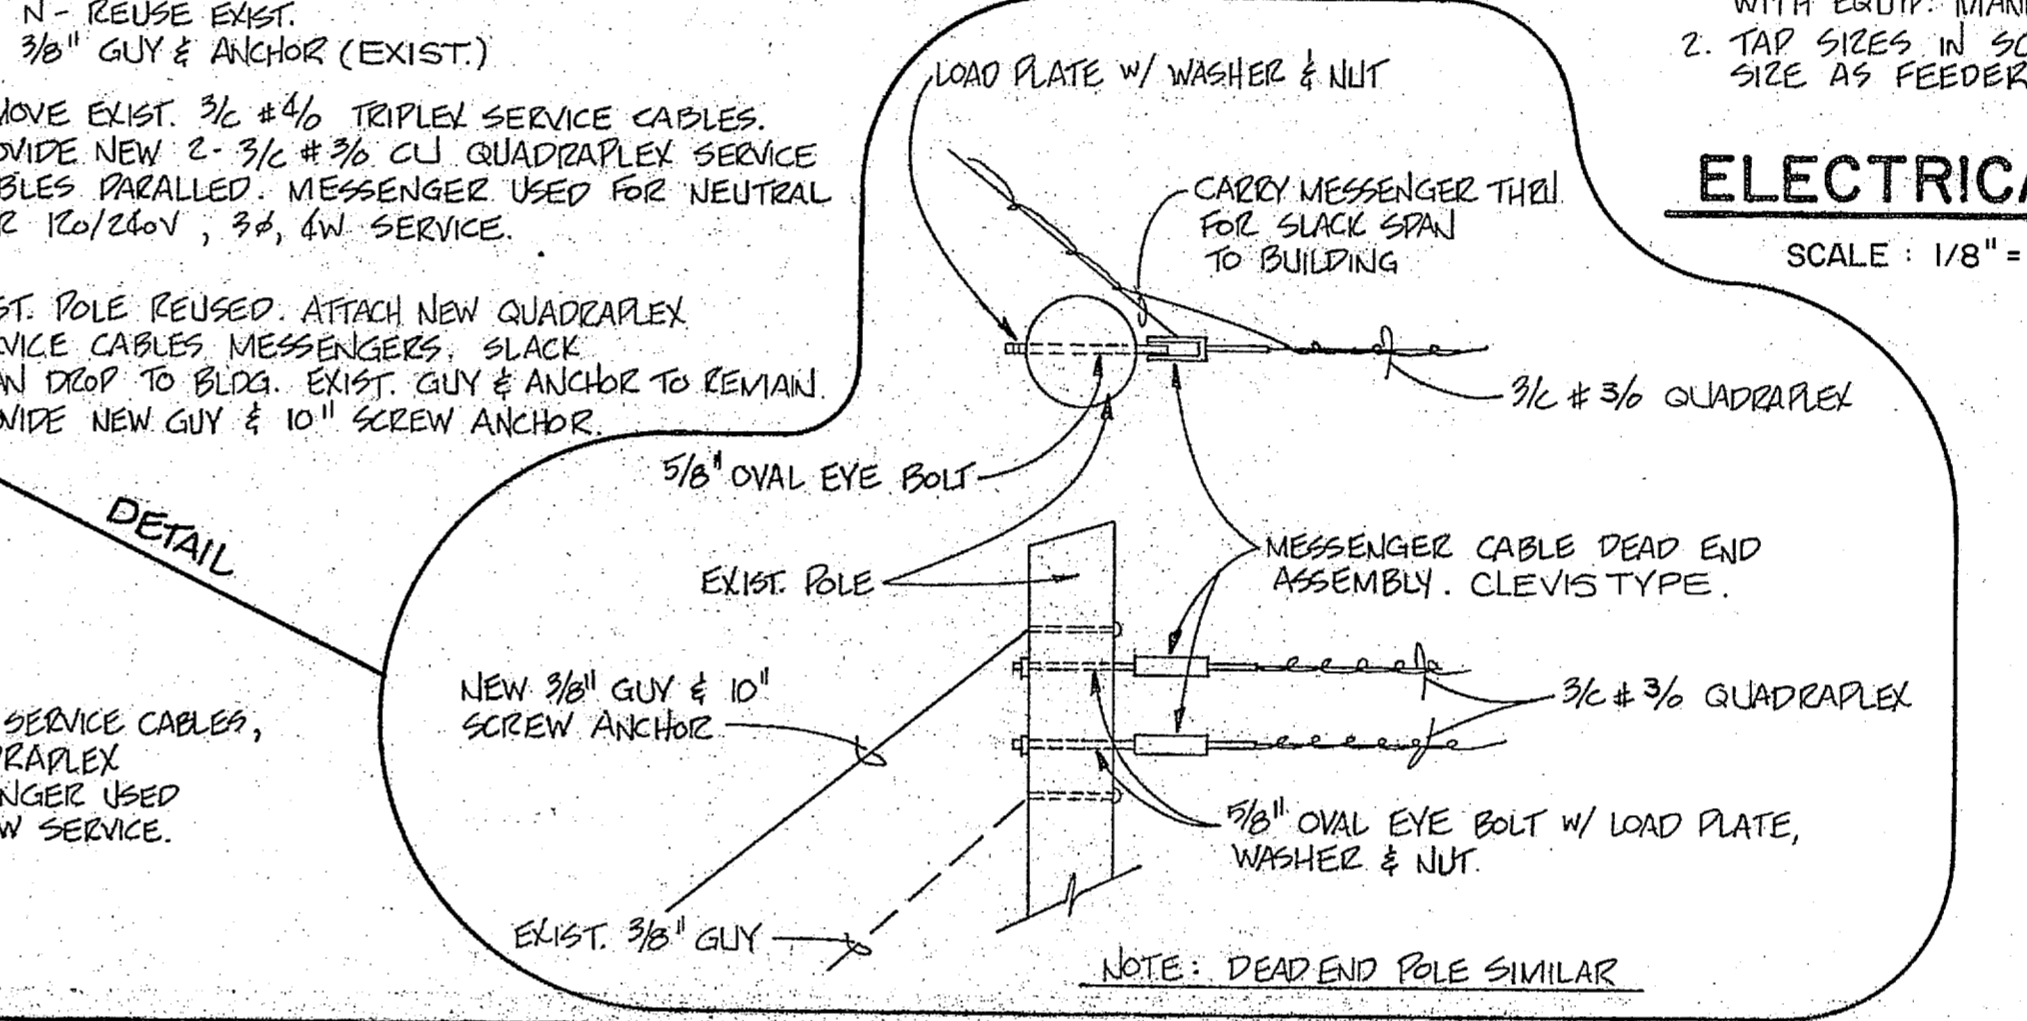 N - REUSE EXIST.
3/8" GUY & ANCHOR (EXIST.)
MOVE EXIST. 3/C #4/0 TRIPLEX SERVICE CABLES.
OVIDE NEW 2 - 3/C #3/0 CU QUADRAPLEX SERVICE
BLES PARALLED. MESSENGER USED FOR NEUTRAL
R 120/240V, 3ø, 4W SERVICE.
ST. POLE REUSED. ATTACH NEW QUADRAPLEX
VICE CABLES MESSENGERS. SLACK
AN DROP TO BLDG. EXIST. GUY & ANCHOR TO REMAIN.
VIDE NEW GUY & 10" SCREW ANCHOR.
DETAIL
SERVICE CABLES,
RAPLEX
NGER USED
W SERVICE.
LOAD PLATE W/ WASHER & NUT
CARRY MESSENGER THRU
FOR SLACK SPAN
TO BUILDING
3/C #3/0 QUADRAPLEX
5/8" OVAL EYE BOLT
EXIST. POLE
MESSENGER CABLE DEAD END
ASSEMBLY. CLEVIS TYPE.
NEW 3/8" GUY & 10"
SCREW ANCHOR
3/C #3/0 QUADRAPLEX
5/8" OVAL EYE BOLT W/ LOAD PLATE,
WASHER & NUT.
EXIST. 3/8" GUY
NOTE: DEAD END POLE SIMILAR
WITH EQUIP. MAN
2. TAP SIZES IN SC
SIZE AS FEEDER
ELECTRICA
SCALE : 1/8" =